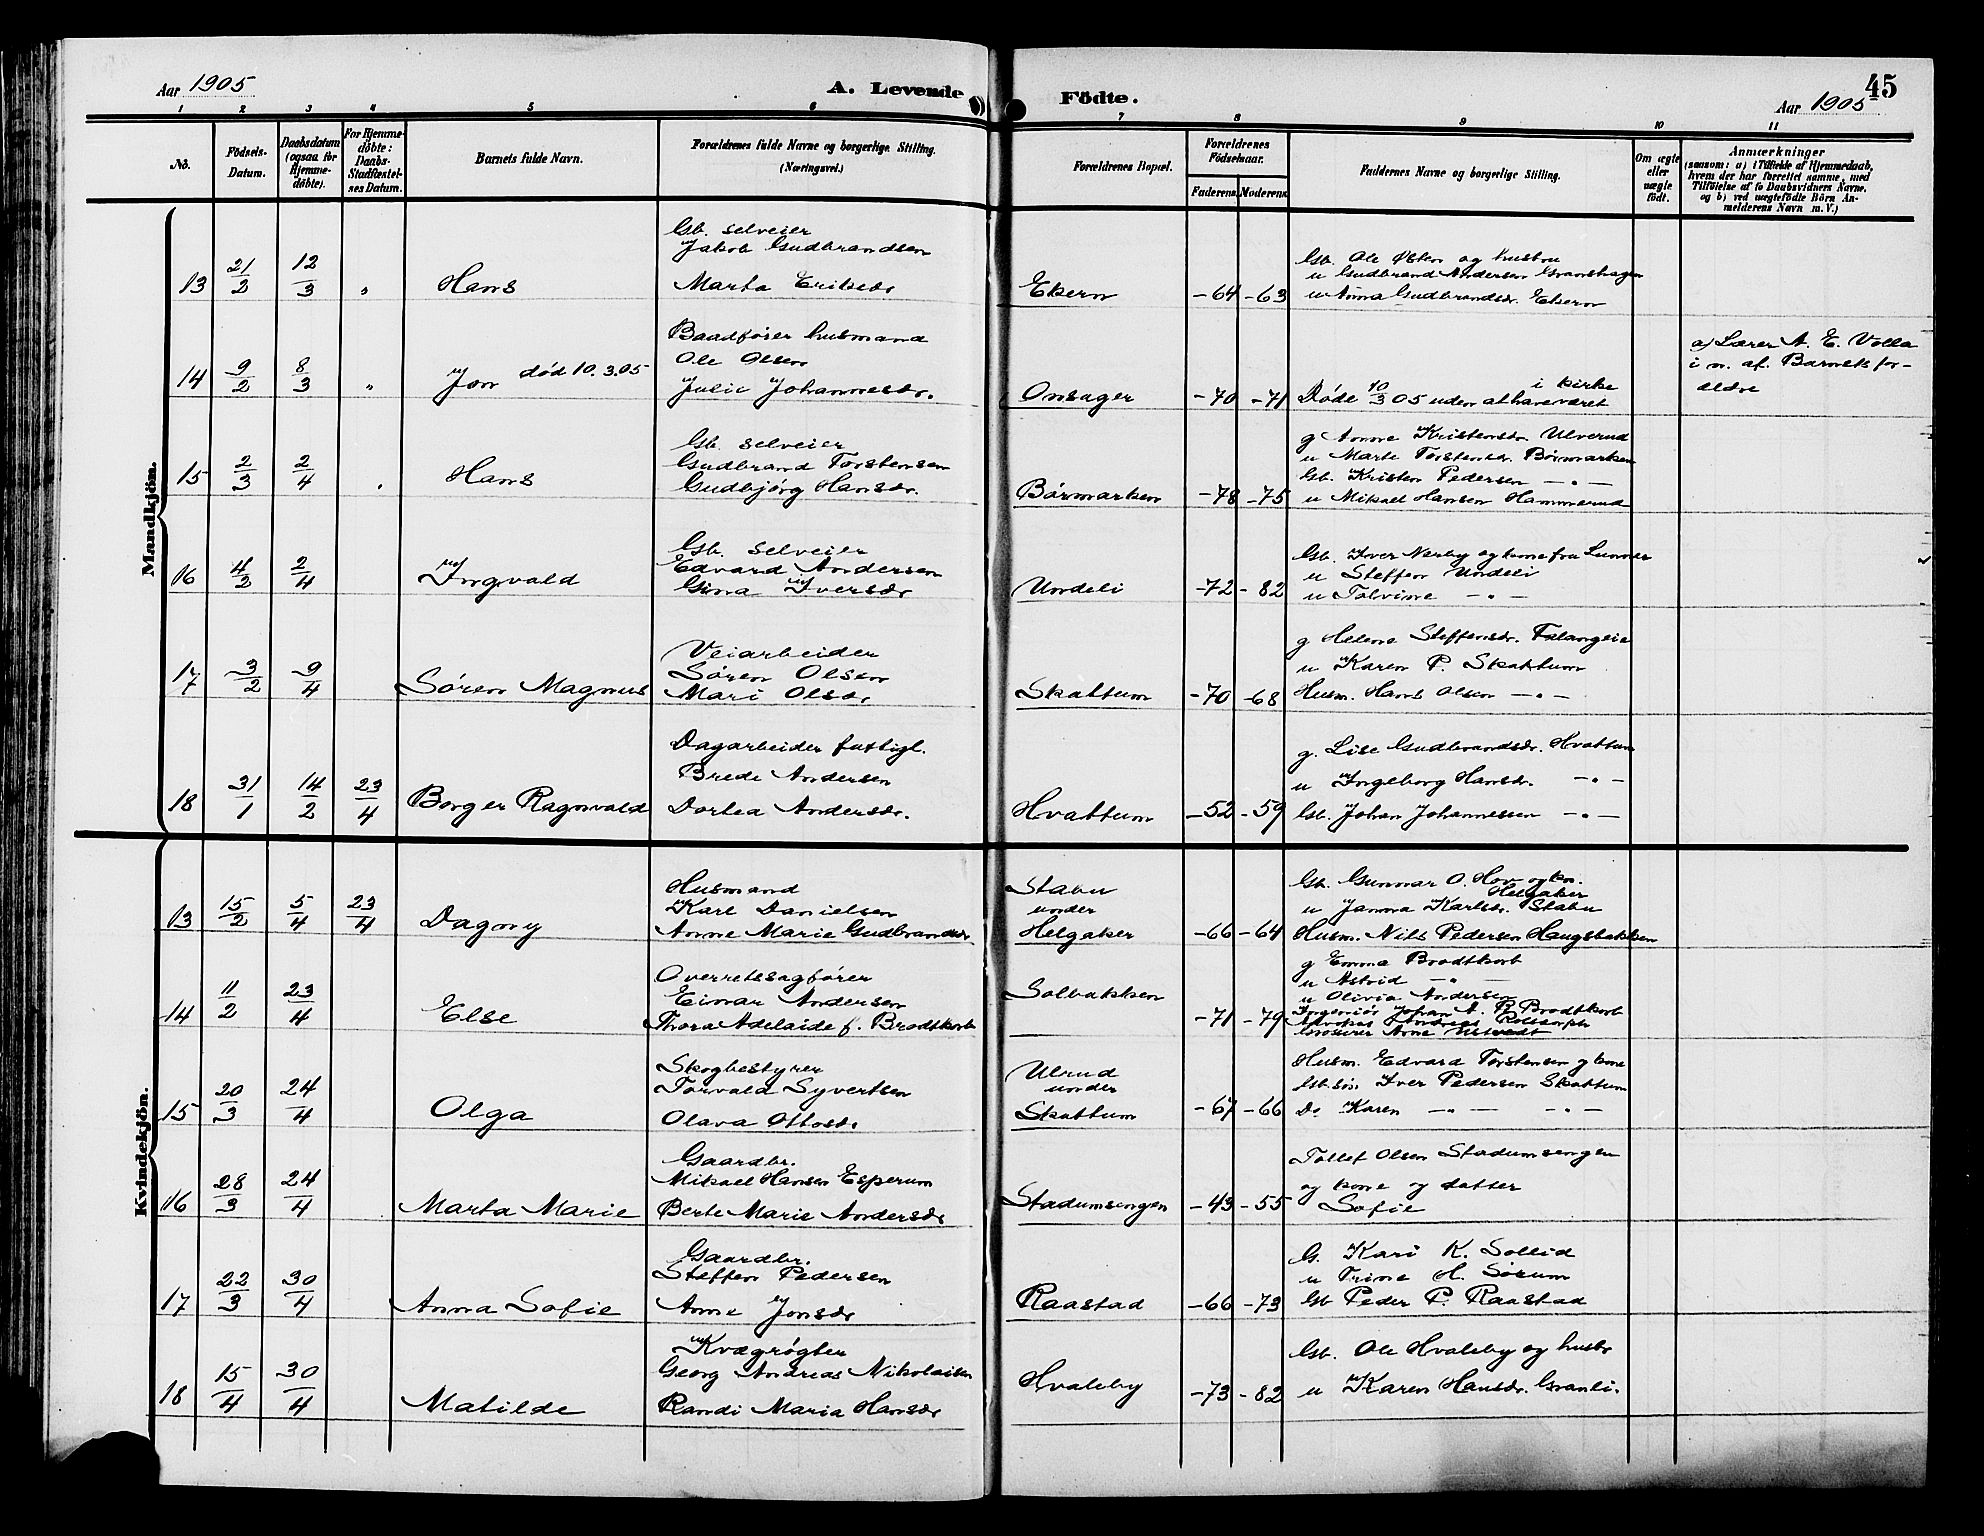 Aar 1905
A. Levende
Födte.
45
Aar 1905
1 2 3 4 5 6 7 8 9 10 11
No.
Födsels-Datum.
Daabsdatum (ogsaa for Hjemme-döbte).
For Hjemme-döbte: Daabs-Stadfæstel-ses Datum.
Barnets fulde Navn.
Forældrenes fulde Navne og borgerlige Stilling. (Næringsvei.)
Forældrenes Bopæl.
Forældrenes Födselsaar.
Faderens. Moderens.
Faddernes Navne og borgerlige Stilling.
Om ægte eller uægte födt.
Anmærkninger
(saasom: a) i Tilfælde af Hjemmedaab,
hvem der har forrettet samme, med
Tilföielse af to Daabsvidners Navne.
og b) ved uægtefödte Börn An-
melderens Navn m. V.)
Mandkjön.
13 21/2 12/3 " Hans
Gb. selveier
Jakob Gudbrandsen
Marta Eriksdr.
Ekern -64 -63
Gb. Ole Østen og hustru
u Gudbrand Andersen Granshagen
u Anna Gudbrandsdr. Ekern
14 9/2 8/3 " Jon død 10.3.05
Baadfører husmand
Ole Olsen
Julie Johannesdr.
Onsager -70 -71
i kirke
Døde 10/3 05 uden at have været
a) Lærer A. E. Volla
i n. af. Barnets for-
ældre
15 2/3 2/4 " Hans
Gb. selveier
Gudbrand Torstensen
Gudbjørg Hansdr.
Børmarken -78 -75
g Anne Kristensdr. Ulverud
u Marte Torstensdr. Børmarken
Gb. Kristen Pedersen — " —
u Mikael Hansen Hammerud
16 4/2 2/4 Ingvald
Gb. selveier
Edvard Andersen
Gina Iversdr
Undeli -72 -82
Gb. Iver Nerby og kone fra Lunner
u Steffen Undeli
u Tolvine — " —
17 3/2 9/4 Søren Magnus
Veiarbeider
Søren Olsen
Mari Olsdr.
Skattum -70 -68
g Helene Steffensdr. Falangeie
u Karen P. Skattum
Husm. Hans Olsen — " —
18 31/1 14/2 23/4 Borger Ragnvald
Dagarbeider fattigl.
Brede Andersen
Dortea Andersdr.
Hvattum -52 -59
g. Lise Gudbrandsdr. Hvattum
u Ingeborg Hansdr. — " —
Gb. Johan Johannessen — " —
Kvindekjön.
13 15/2 5/4 23/4 Dagny
Husmand
Karl Danielsen
Anne Marie Gudbrandsdr.
Stabu
under
Helgaker -66 -64
Gb. Gunnar O. Hov og kn.
Helgaker
u Janna Karlsdr. Stabu
Husm. Nils Pedersen Haugsbakken
14 11/2 23/4 Else
Overretssagfører
Eimar Andersen
Thora Adelaide f. Brodtkorb
Solbakken -71 -79
g Emma Brodtkorb
u Astrid — " —
u Olivia Andersen
Ingeniør Johan A. B. Brodtkorb
Grosserer Arne
15 20/3 24/4 Olga
Skogbestyrer
Torvald Syvertsen
Olava Ottosdr.
Ulrud
under
Skattum -67 -66
Husm. Edvard Torstensen g kone
Gb. søn Iver Pedersen Skattum
Do Karen — " — — " —
16 28/3 24/4 Marta Marie
Gaardbr.
Mikael Hansen Esperum
Berte Marie Andersdr
Stadumsengen -43 -55
Tollef Olsen Stadumsengen
og kone og datter
Sofie
17 22/3 30/4 Anna Sofie
Gaardbr.
Steffen Pedersen
Anne Jonsdr
Raastad -66 -73
G. Kari K. Sollid
u Trine H. Sørum
Gb Peder P. Raastad
18 15/4 30/4 Matilde
Kvægrøgter
Georg Andreas Nikolaisen
Randi Maria Hansdr
Hvaleby -73 -82
Gb. Ole Hvaleby og hustr
u Karen Hansdr. Granli.